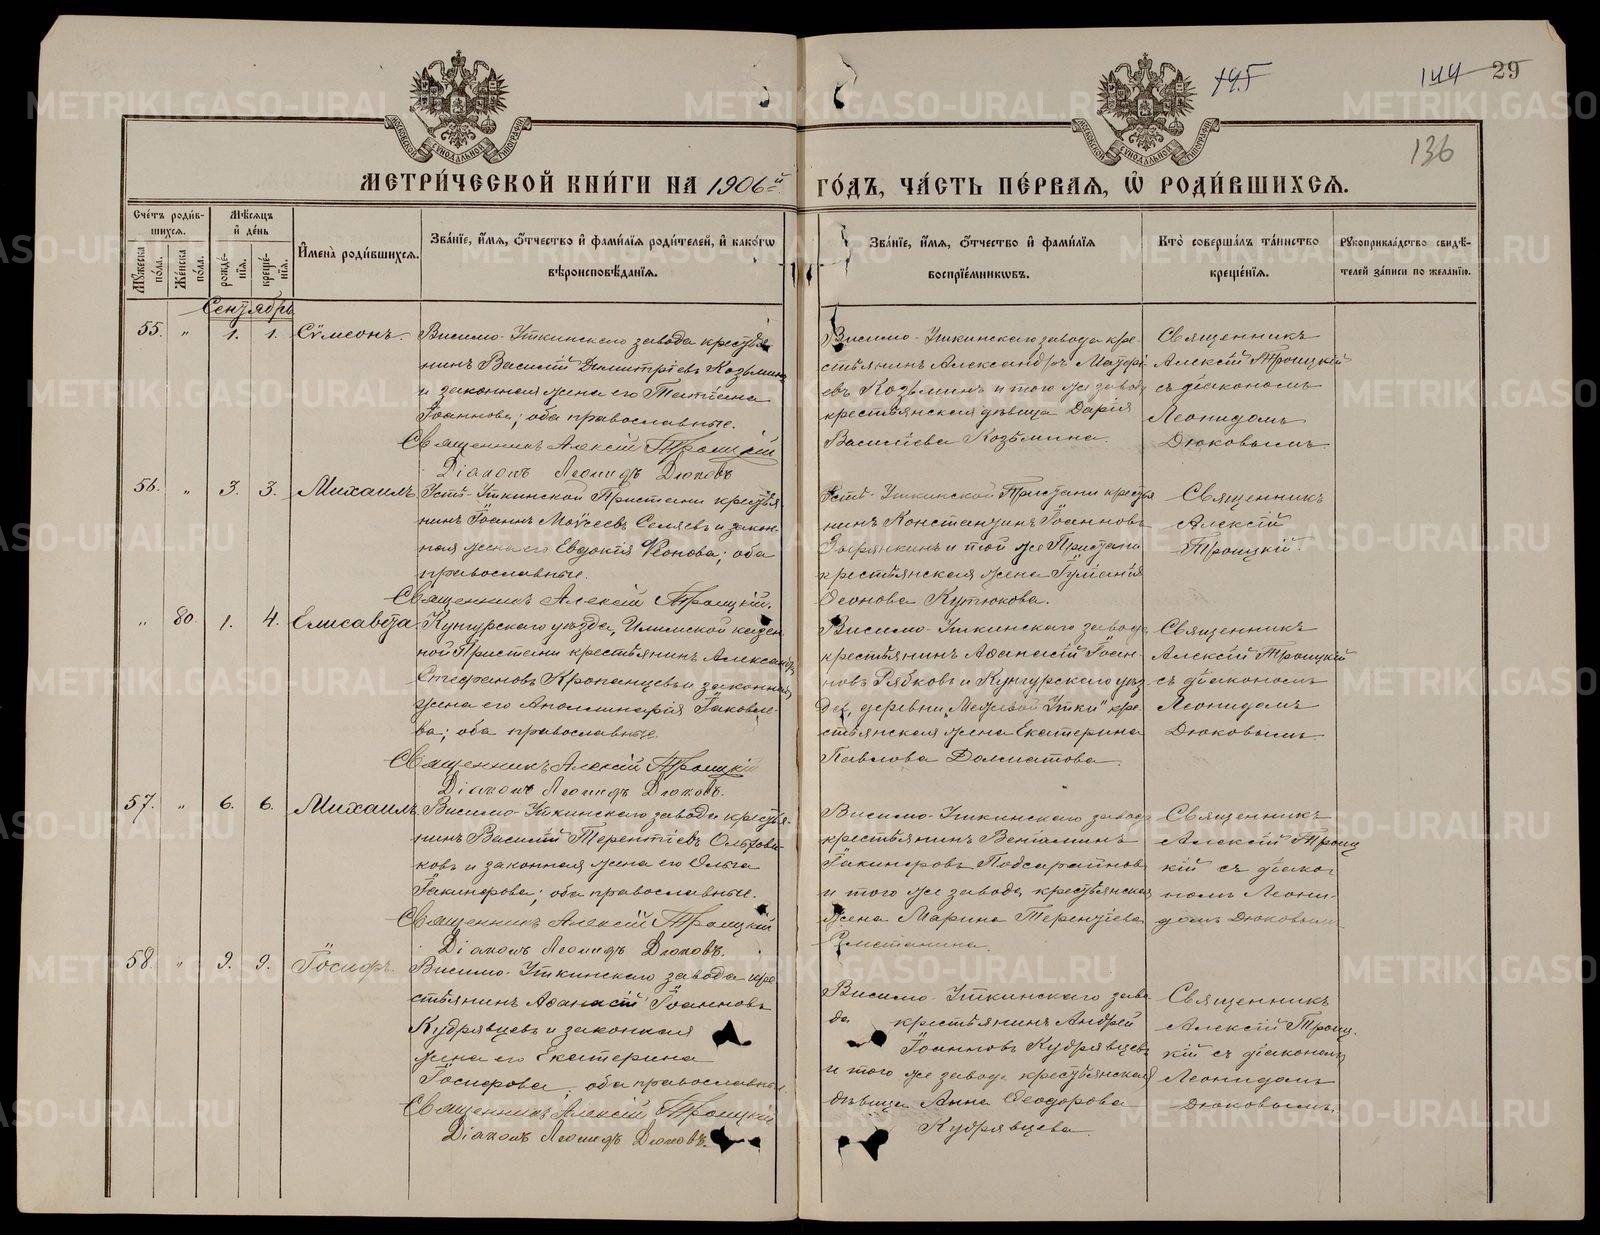 145
144 29
136
МЕТРИ́ЧЕСКОЙ КНИ́ГИ НА 1906й
ГО́ДЪ, ЧА́СТЬ ПЕ́РВАЯ, Ѡ РОДИ́ВШИХСЯ.
Сче́тъ роди́в-
шихся.
Мꙋжеска по́ла.
Же́нска по́ла.
Мѣ́сяцъ
и҆ де́нь
рожде́-
нїя.
креще́-
нїя.
И҆мена̀ роди́вшихся.
Зва́нїе, и҆́мя, о҆́тчество и҆ фами́лїя роди́телей, и҆ како́гѡ
вѣроисповѣ́данїя.
Зва́нїе, и҆́мя, о҆́тчество и҆ фами́лїя
воспрїе́мникѡвъ.
Кто̀ соверша́лъ та́инство
креще́нїя.
Рꙋкоприкла́дство свидѣ́-
телей за́писи по жела́нїю.
Сентябрь
55. " 1. 1. Сѵмеонъ.
Висимо-Уткинскаго завода крестья-
нинъ Василій Димитріевъ Козьминъ
и законная жена его Татіана
Іоаннова; оба православные.
Священникъ Алексій Троицкій
Діаконъ Леонидъ Дюковъ
Висимо-Уткинскаго завода кре-
стьянинъ Александръ
евъ Козьминъ и того же завода
крестьянская дѣвица Дарія
Василіева Козьмина.
Священникъ
Алексій Троицкій
съ діакономъ
Леонидомъ
Дюковымъ
56. " 3. 3. Михаилъ.
Усть-Уткинской Пристани крестья-
нинъ Іоаннъ Моѵсеевъ Селяевъ и закон-
ная жена его Евдокія Конова; оба
православные.
Священникъ Алексій Троицкій.
Усть-Уткинской Пристани крестья
нинъ Константинъ Іоанновъ
и той же Пристани
крестьянская жена Іуліанія
Леонова Кутюкова.
Священникъ
Алексій
Троицкій.
" 80. 1. 4. Елисавета.
Кунгурскаго уѣзда, Илимской казен-
ной Пристани крестьянинъ Александръ
Стефановъ Кропанцевъ и законная
жена его Аполлинарія Іаковле-
ва; оба православные.
Священникъ Алексій Троицкій
Діаконъ Леонидъ Дюковъ.
Висимо-Уткинскаго завода
крестьянинъ Аѳанасій Іоан-
новъ Рябковъ и Кунгурскаго уѣз
да, деревни "Межевой Утки" кре-
стьянская жена Екатерина
Павлова Долматова.
Священникъ
Алексій Троицкій
съ діакономъ
Леонидомъ
Дюковымъ.
57. " 6. 6. Михаилъ.
Висимо-Уткинскаго завода крестья-
нинъ Василій Терентіевъ
ковъ и законная жена его Ольга
Іакинѳова; оба православные.
Священникъ Алексій Троицкій
Діаконъ Леонидъ Дюковъ.
Висимо-Уткинскаго завода
крестьянинъ Веніаминъ
Іакинѳовъ
и того же завода крестьянская
жена Марина Терентіева
Священникъ
Алексій Троиц
кій съ діако-
номъ Леони-
домъ Дюковымъ
58. " 9. 9. Іосифъ.
Висимо-Уткинскаго завода кре-
стьянинъ Аѳанасій Іоанновъ
Кудрявцевъ и законная
жена его Екатерина
Іосифова; оба православные
Священникъ Алексій Троицкій
Діаконъ Леонидъ Дюковъ.
Висимо-Уткинскаго заво-
да крестьянинъ Андрей
Іоанновъ Кудрявцевъ
и того же завода крестьянская
дѣвица Анна Ѳеодорова
Кудрявцева.
Священникъ
Алексій Троиц-
кій съ діакономъ
Леонидомъ
Дюковымъ.
METRIKI.GASO-URAL.RU